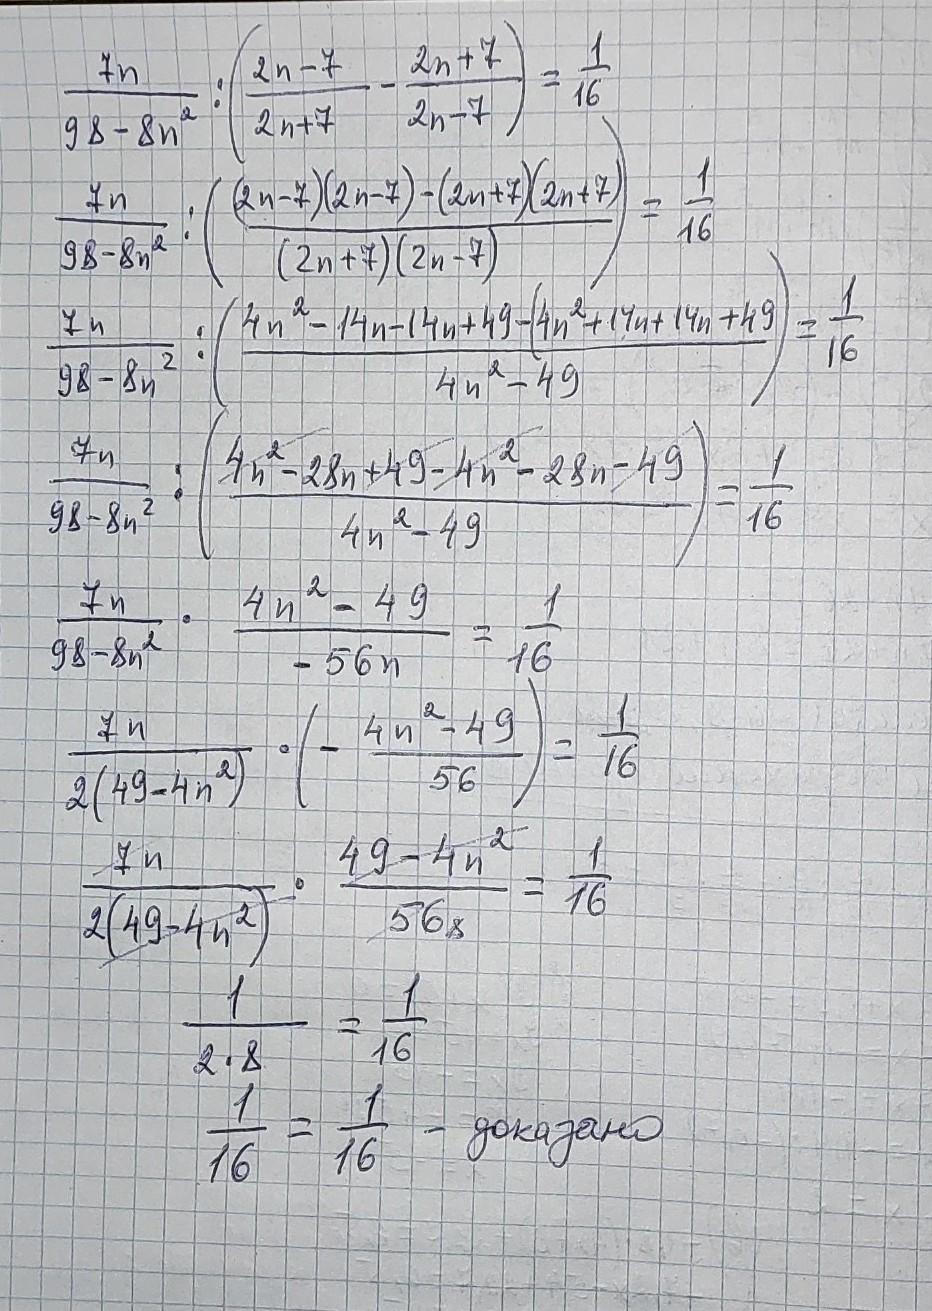 7n/(98-8n²) : ((2n-7)/(2n+7) - (2n+7)/(2n-7)) = 1/16
7n/(98-8n²) : (((2n-7)(2n-7)-(2n+7)(2n+7))/((2n+7)(2n-7))) = 1/16
7n/(98-8n²) : ((4n²-14n-14n+49-(4n²+14n+14n+49)/(4n²-49)) = 1/16
7n/(98-8n²) : ((4n²-28n+49-4n²-28n-49)/(4n²-49)) = 1/16
7n/(98-8n²) · (4n²-49)/(-56n) = 1/16
7n/(2(49-4n²)) · (- (4n²-49)/56) = 1/16
7n/(2(49-4n²)) · (49-4n²)/56 8 = 1/16
1/(2·8) = 1/16
1/16 = 1/16 - доказано